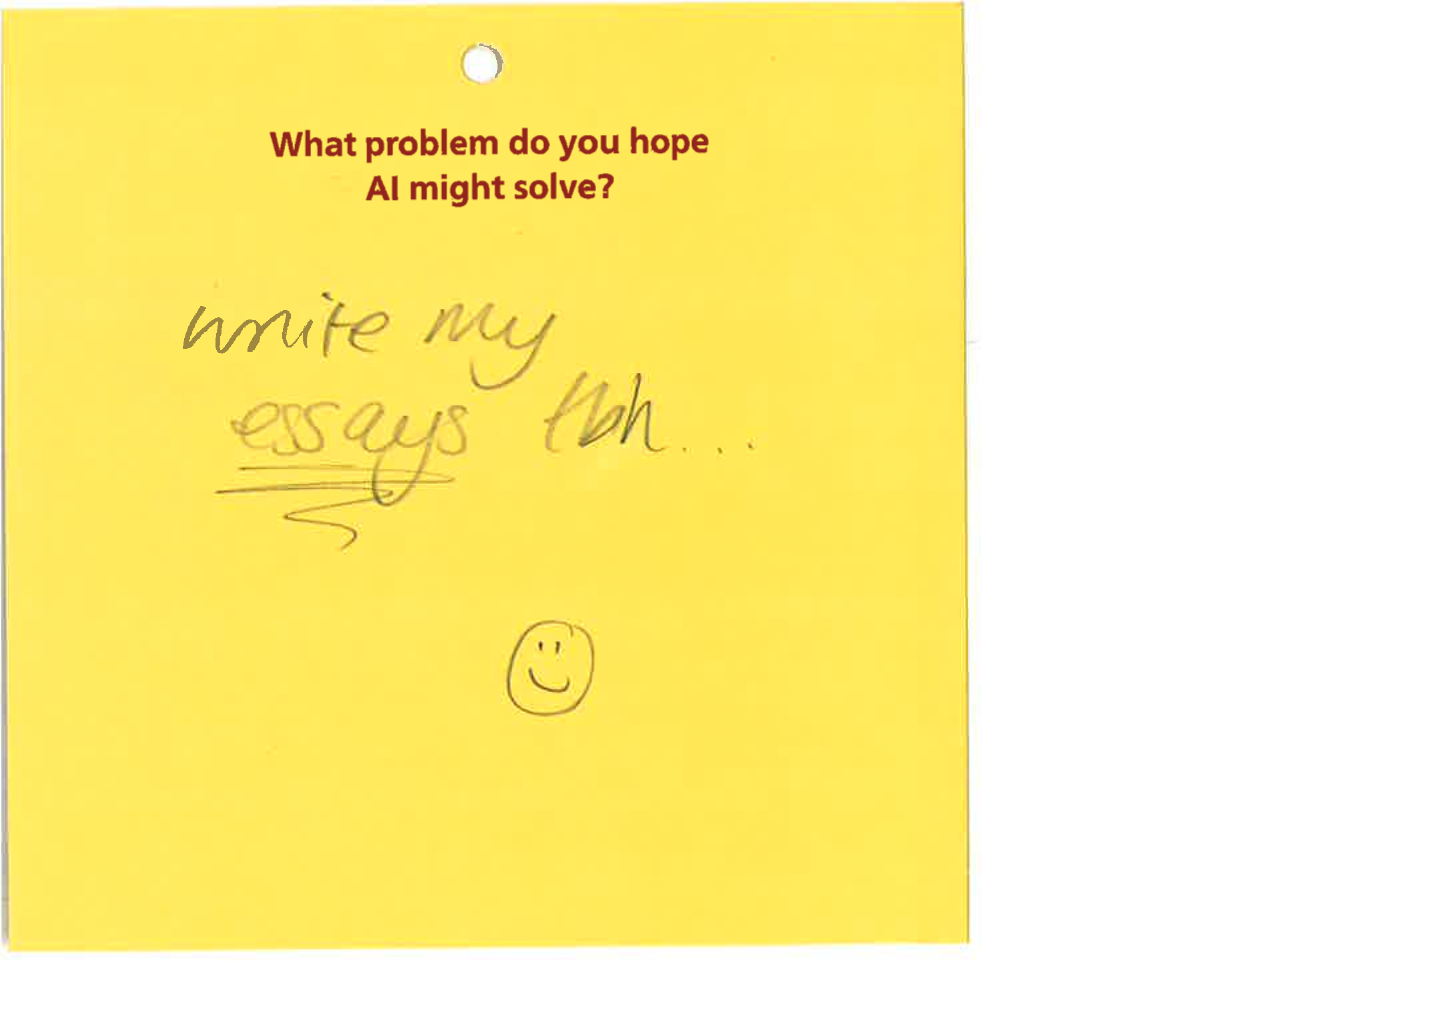 What problem do you hope
AI might solve?
write my
essays tbh...